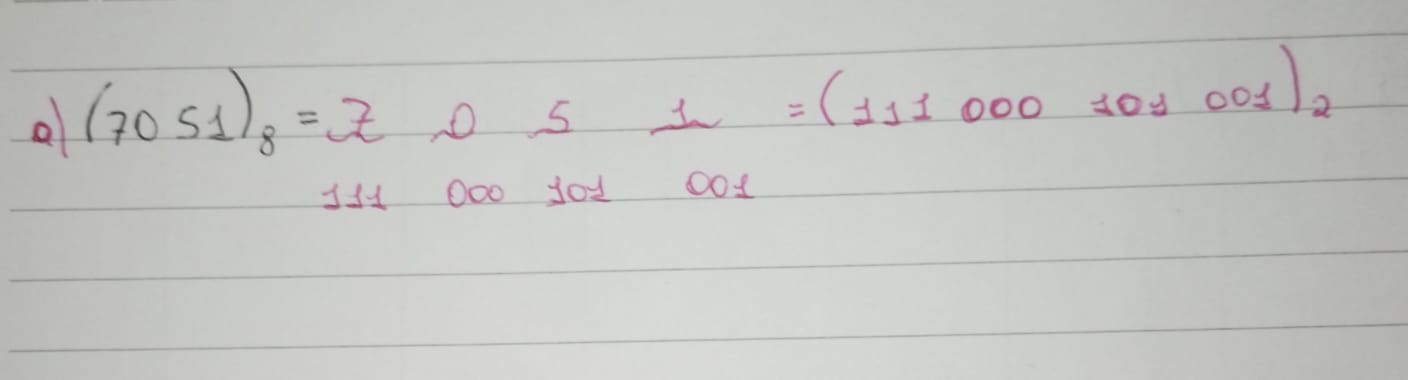 a) (7051)₈ = 7 0 5 1 = (111 000 101 001)₂
111 000 101 001